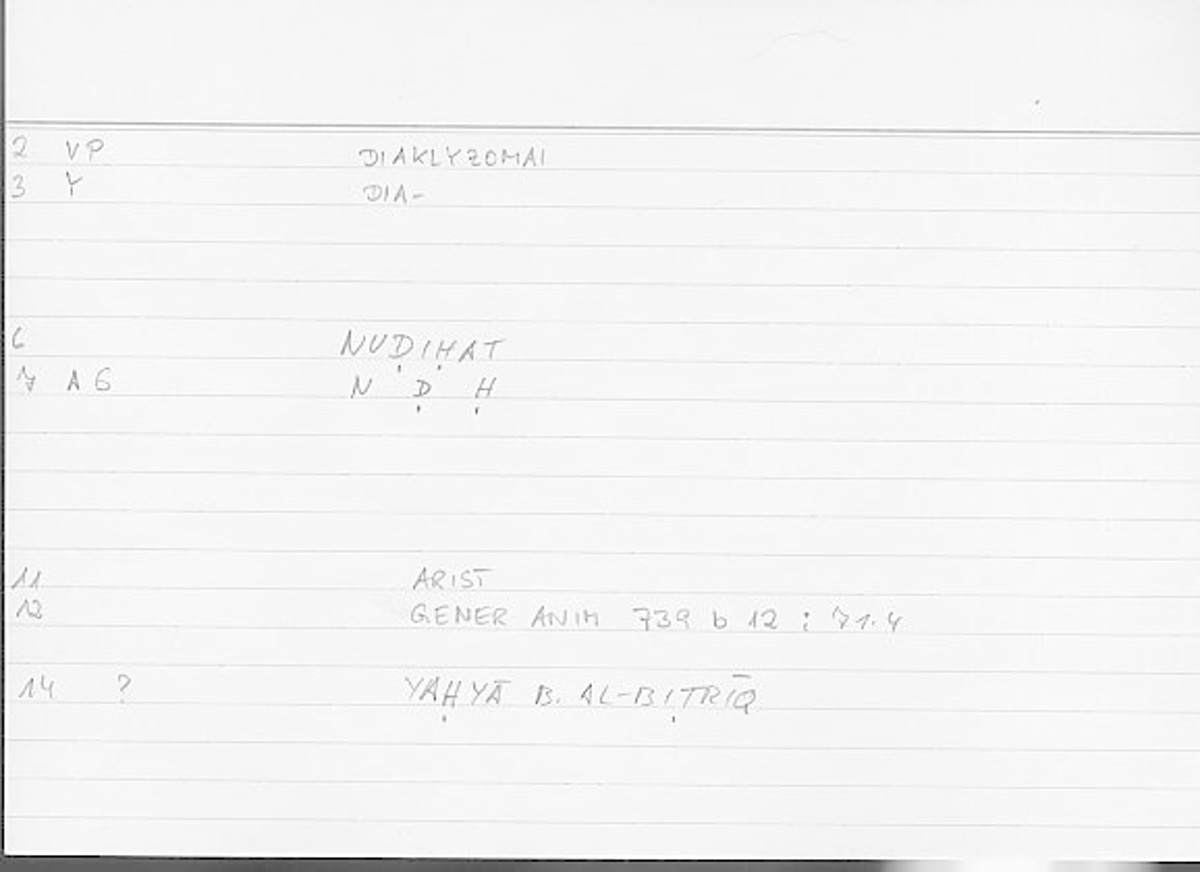 2 VP DIAKLYZOMAI
3 Y DIA-
6 NUḌIḤAT
7 A6 N Ḍ Ḥ
11 ARIST
12 GENER ANIM 739 b 12 ; 71.4
14 ? YAḤYĀ B. AL-BIṬRĪQ